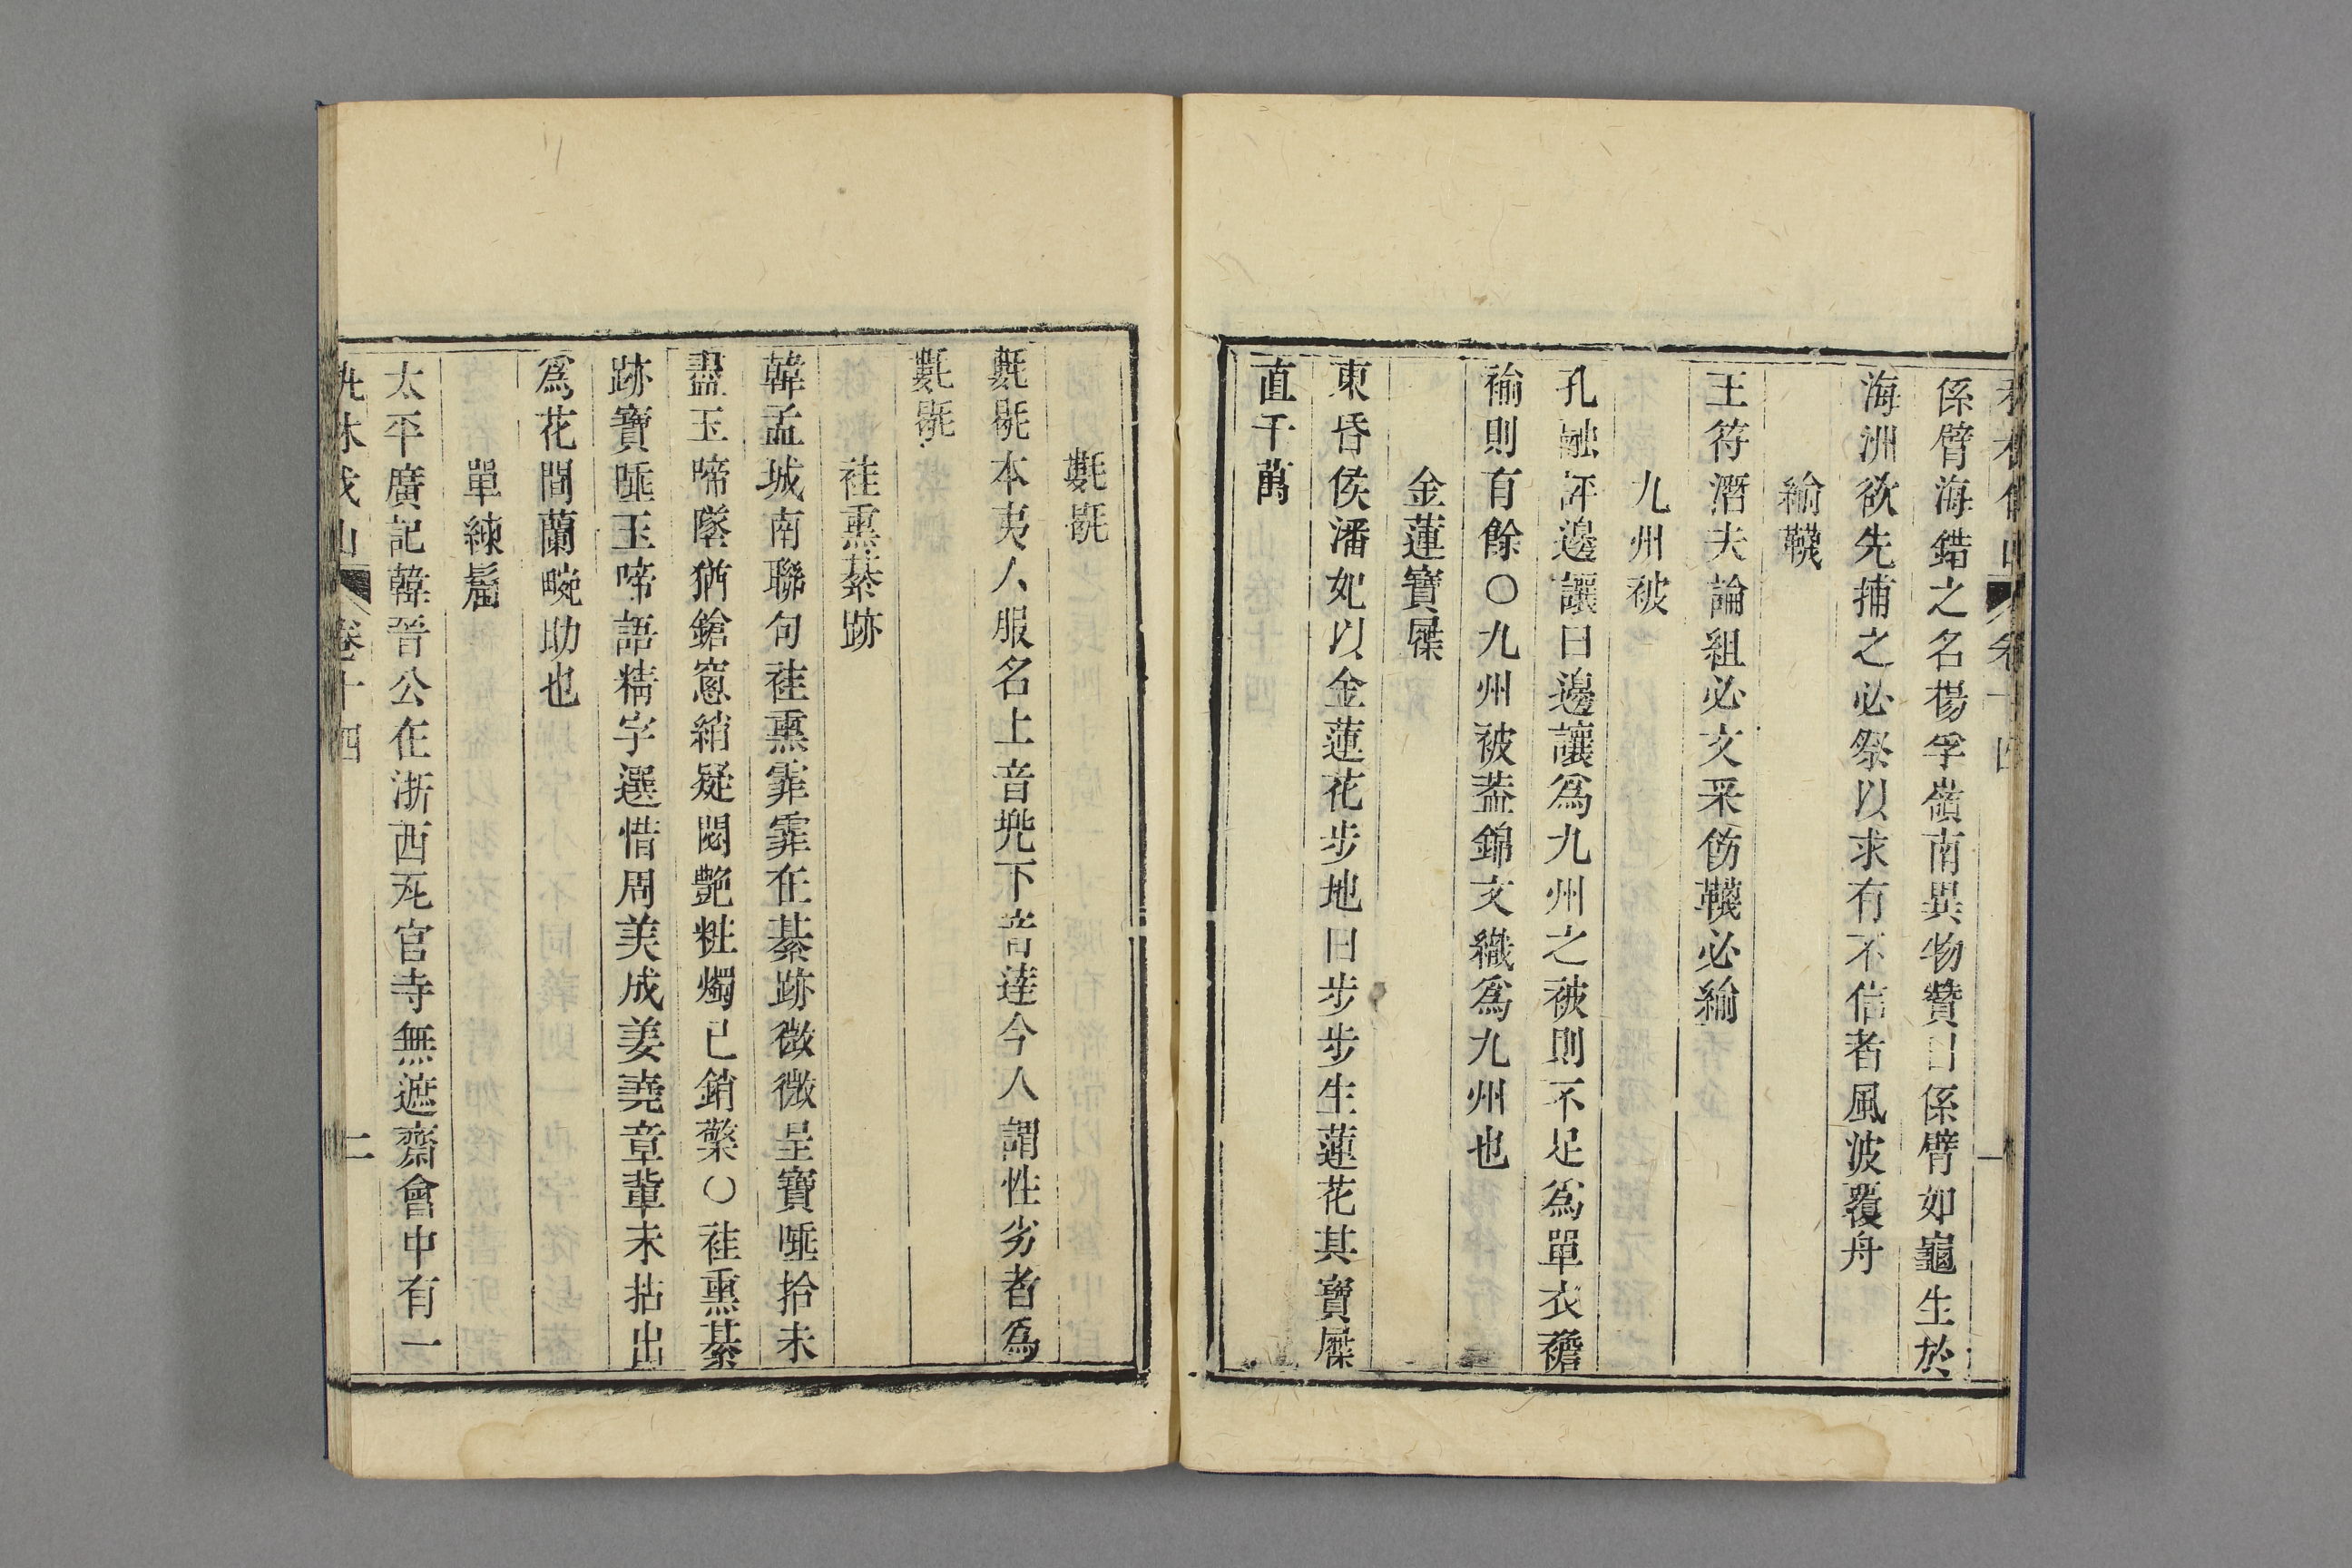 係臂海錯之名楊孚嶺南異物贊曰係臂如龜生於
海洲欲先捕之必祭以求有不信者風波覆舟
綸韈
王符潛夫論組必文采飭韈必綸
九州被
孔融評邊讓曰邊讓爲九州之被則不足爲單衣襜
褕則有餘○九州被蓋錦文織爲九州也
金蓮寶屧
東昏侯潘妃以金蓮花步地曰步步生蓮花其寶屧
直千萬
㲲㲪
本夷人服名上音兠下音達今人謂性劣者爲
袿熏綦跡
韓孟城南聯句袿熏霏霏在綦跡微微呈寶唾拾未
盡玉啼墜猶鎗窻綃疑閟艶粧燭已銷檠○袿熏綦
跡寶唾玉啼語精字選惜周美成姜堯章輩未拈出
爲花間蘭畹助也
單練髾
太平廣記韓晉公在浙西瓦官寺無遮齋會中有一
卷十四 二